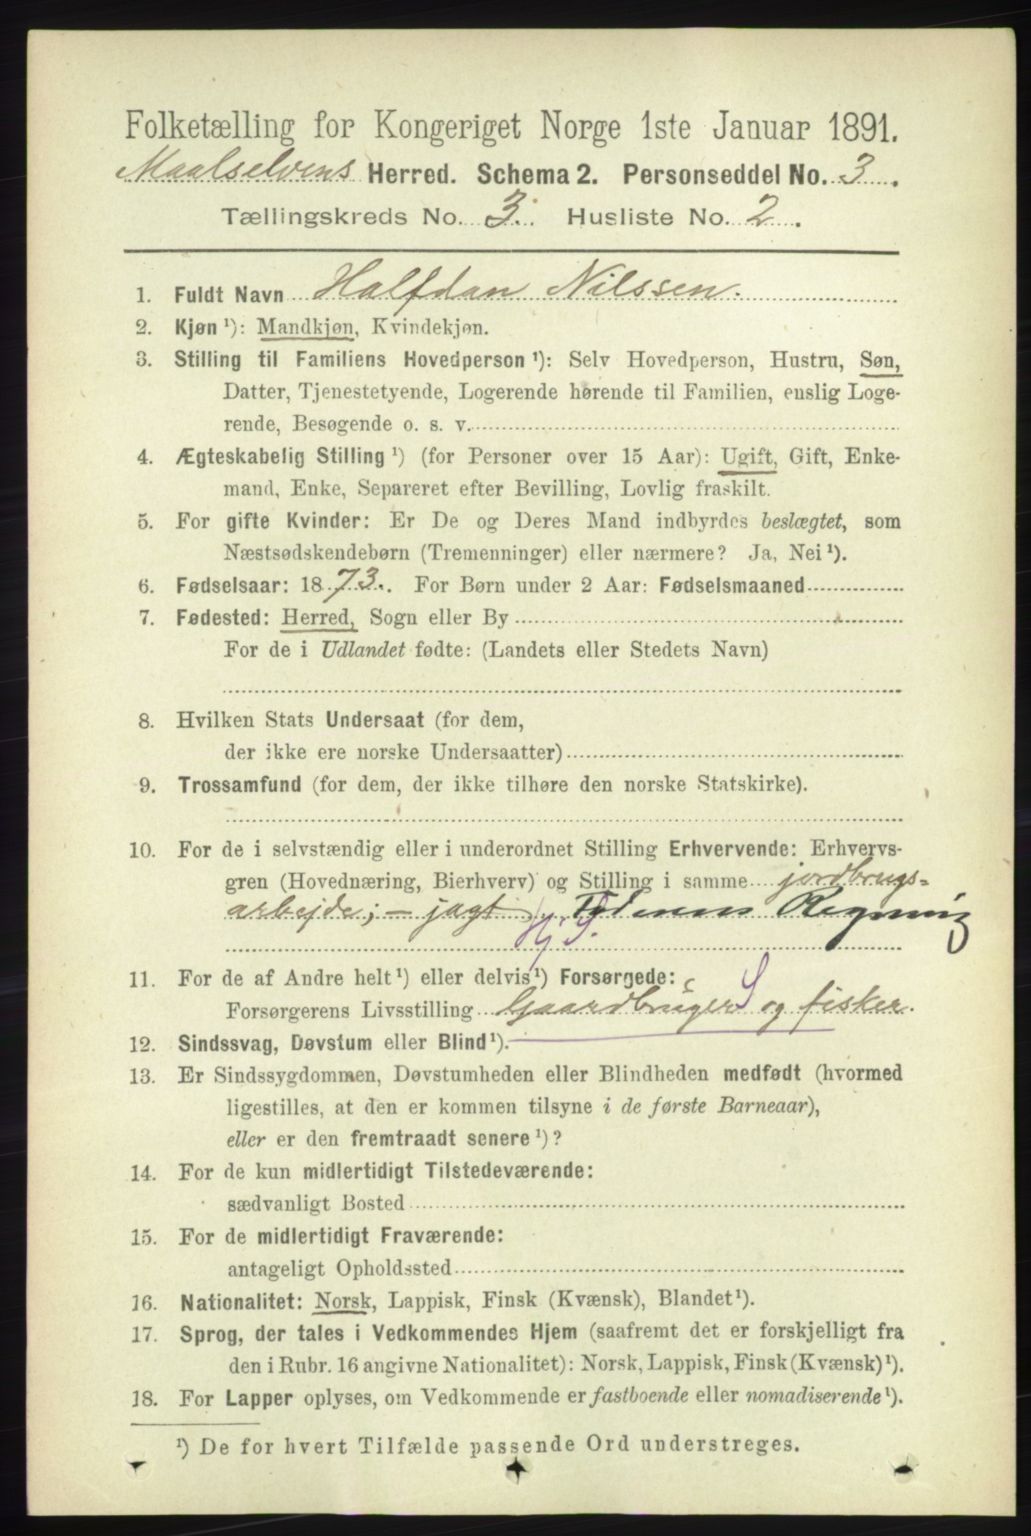 Folketælling for Kongeriget Norge 1ste Januar 1891.
Maalselvens Herred. Schema 2. Personseddel No. 3.
Tællingskreds No. 3. Husliste No. 2.
1. Fuldt Navn Halfdan Nilssen.
2. Kjøn ¹): Mandkjøn, Kvindekjøn.
3. Stilling til Familiens Hovedperson ¹): Selv Hovedperson, Hustru, Søn,
Datter, Tjenestetyende, Logerende hørende til Familien, enslig Loge-
rende, Besøgende o. s. v.
4. Ægteskabelig Stilling ¹) (for Personer over 15 Aar): Ugift, Gift, Enke-
mand, Enke, Separeret efter Bevilling, Lovlig fraskilt.
5. For gifte Kvinder: Er De og Deres Mand indbyrdes beslægtet, som
Næstsødskendebørn (Tremenninger) eller nærmere? Ja, Nei ¹).
6. Fødselsaar: 1873. For Børn under 2 Aar: Fødselsmaaned
7. Fødested: Herred, Sogn eller By
For de i Udlandet fødte: (Landets eller Stedets Navn)
8. Hvilken Stats Undersaat (for dem,
der ikke ere norske Undersaatter)
9. Trossamfund (for dem, der ikke tilhøre den norske Statskirke).
10. For de i selvstændig eller i underordnet Stilling Erhvervende: Erhvervs-
gren (Hovednæring, Bierhverv) og Stilling i samme jordbrugs-
arbejde; - jagt Regning
11. For de af Andre helt ¹) eller delvis ¹) Forsørgede:
Forsørgerens Livsstilling Gaardbruger S og fisker.
12. Sindssvag, Døvstum eller Blind ¹).
13. Er Sindssygdommen, Døvstumheden eller Blindheden medfødt (hvormed
ligestilles, at den er kommen tilsyne i de første Barneaar),
eller er den fremtraadt senere ¹)?
14. For de kun midlertidigt Tilstedeværende:
sædvanligt Bosted
15. For de midlertidigt Fraværende:
antageligt Opholdssted
16. Nationalitet: Norsk, Lappisk, Finsk (Kvænsk), Blandet ¹).
17. Sprog, der tales i Vedkommendes Hjem (saafremt det er forskjelligt fra
den i Rubr. 16 angivne Nationalitet): Norsk, Lappisk, Finsk (Kvænsk) ¹).
18. For Lapper oplyses, om Vedkommende er fastboende eller nomadiserende ¹).
¹) De for hvert Tilfælde passende Ord understreges.